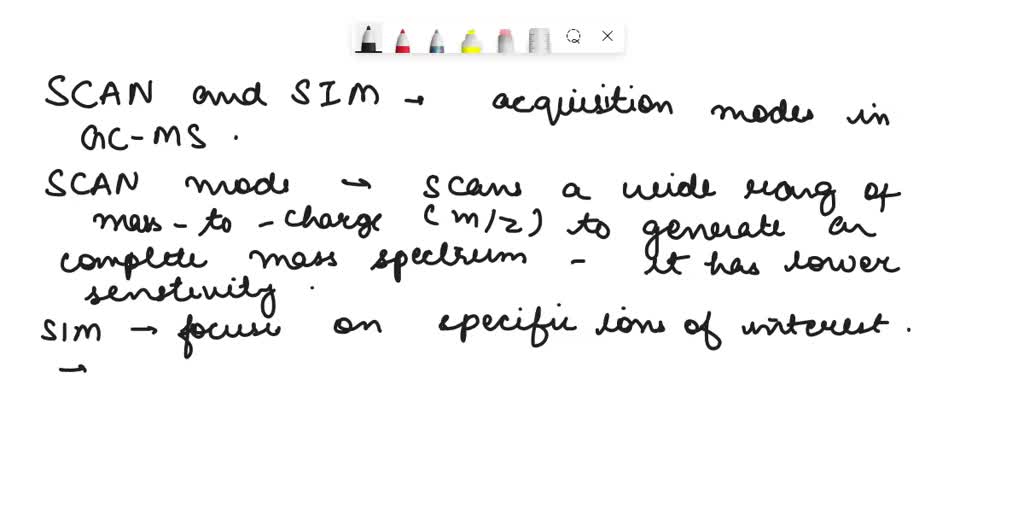 SCAN and SIM → acquisition modes in
GC-MS.
SCAN mode → scans a wide rang of
mass-to-charge (m/z) to generate an
complete mass spectrum - it has lower
senstivity.
SIM → focuse on specific ions of interest.
→